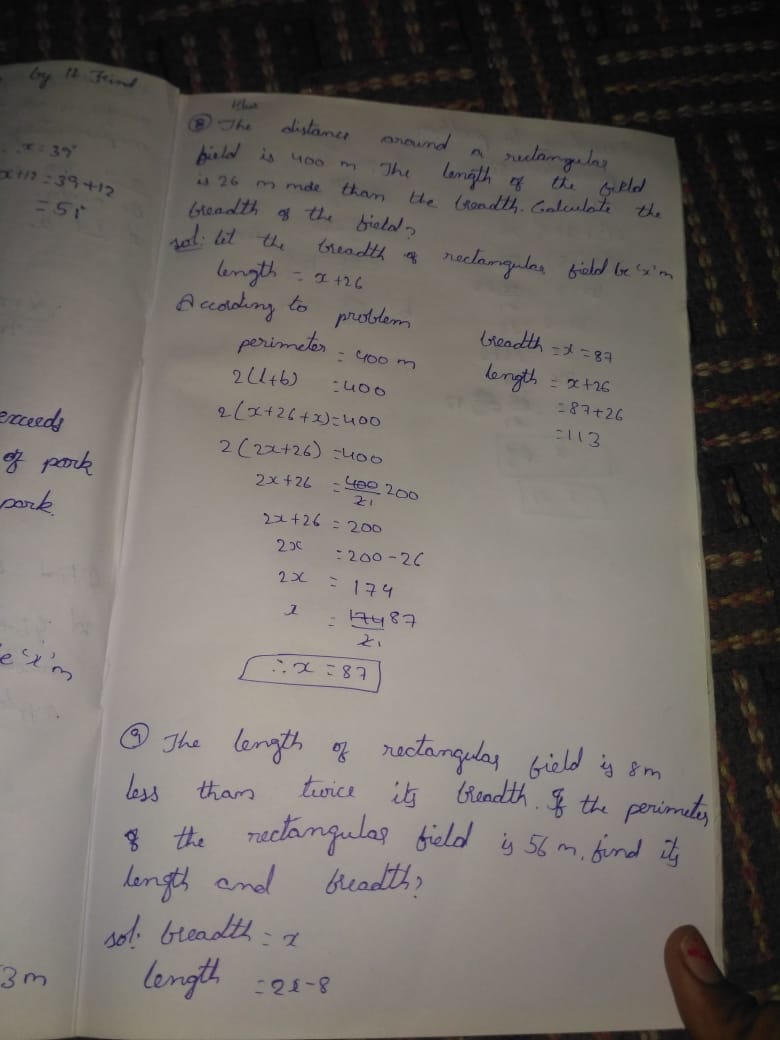 by 12 Find
x = 39
x+12 = 39+12
= 51
exceeds
of park
park.
e 'x' m
3 m
⑧ The distance around a rectangular
field is 400 m The length of the field
is 26 m more than the breadth. Calculate the
breadth of the field?
sol: let the breadth of rectangular field be 'x' m
length = x+26
According to problem
perimeter = 400 m
2(l+b) = 400
2(x+26+x)=400
2(2x+26) = 400
2x+26 = 400/2 200
2x+26 = 200
2x = 200-26
2x = 174
x = 174/2 87
∴ x = 87
breadth = x = 87
length = x+26
= 87+26
= 113
⑨ The length of rectangular field is 8m
less than twice its breadth. If the perimeter
of the rectangular field is 56 m, find its
length and breadth?
sol: breadth = x
length = 2x-8